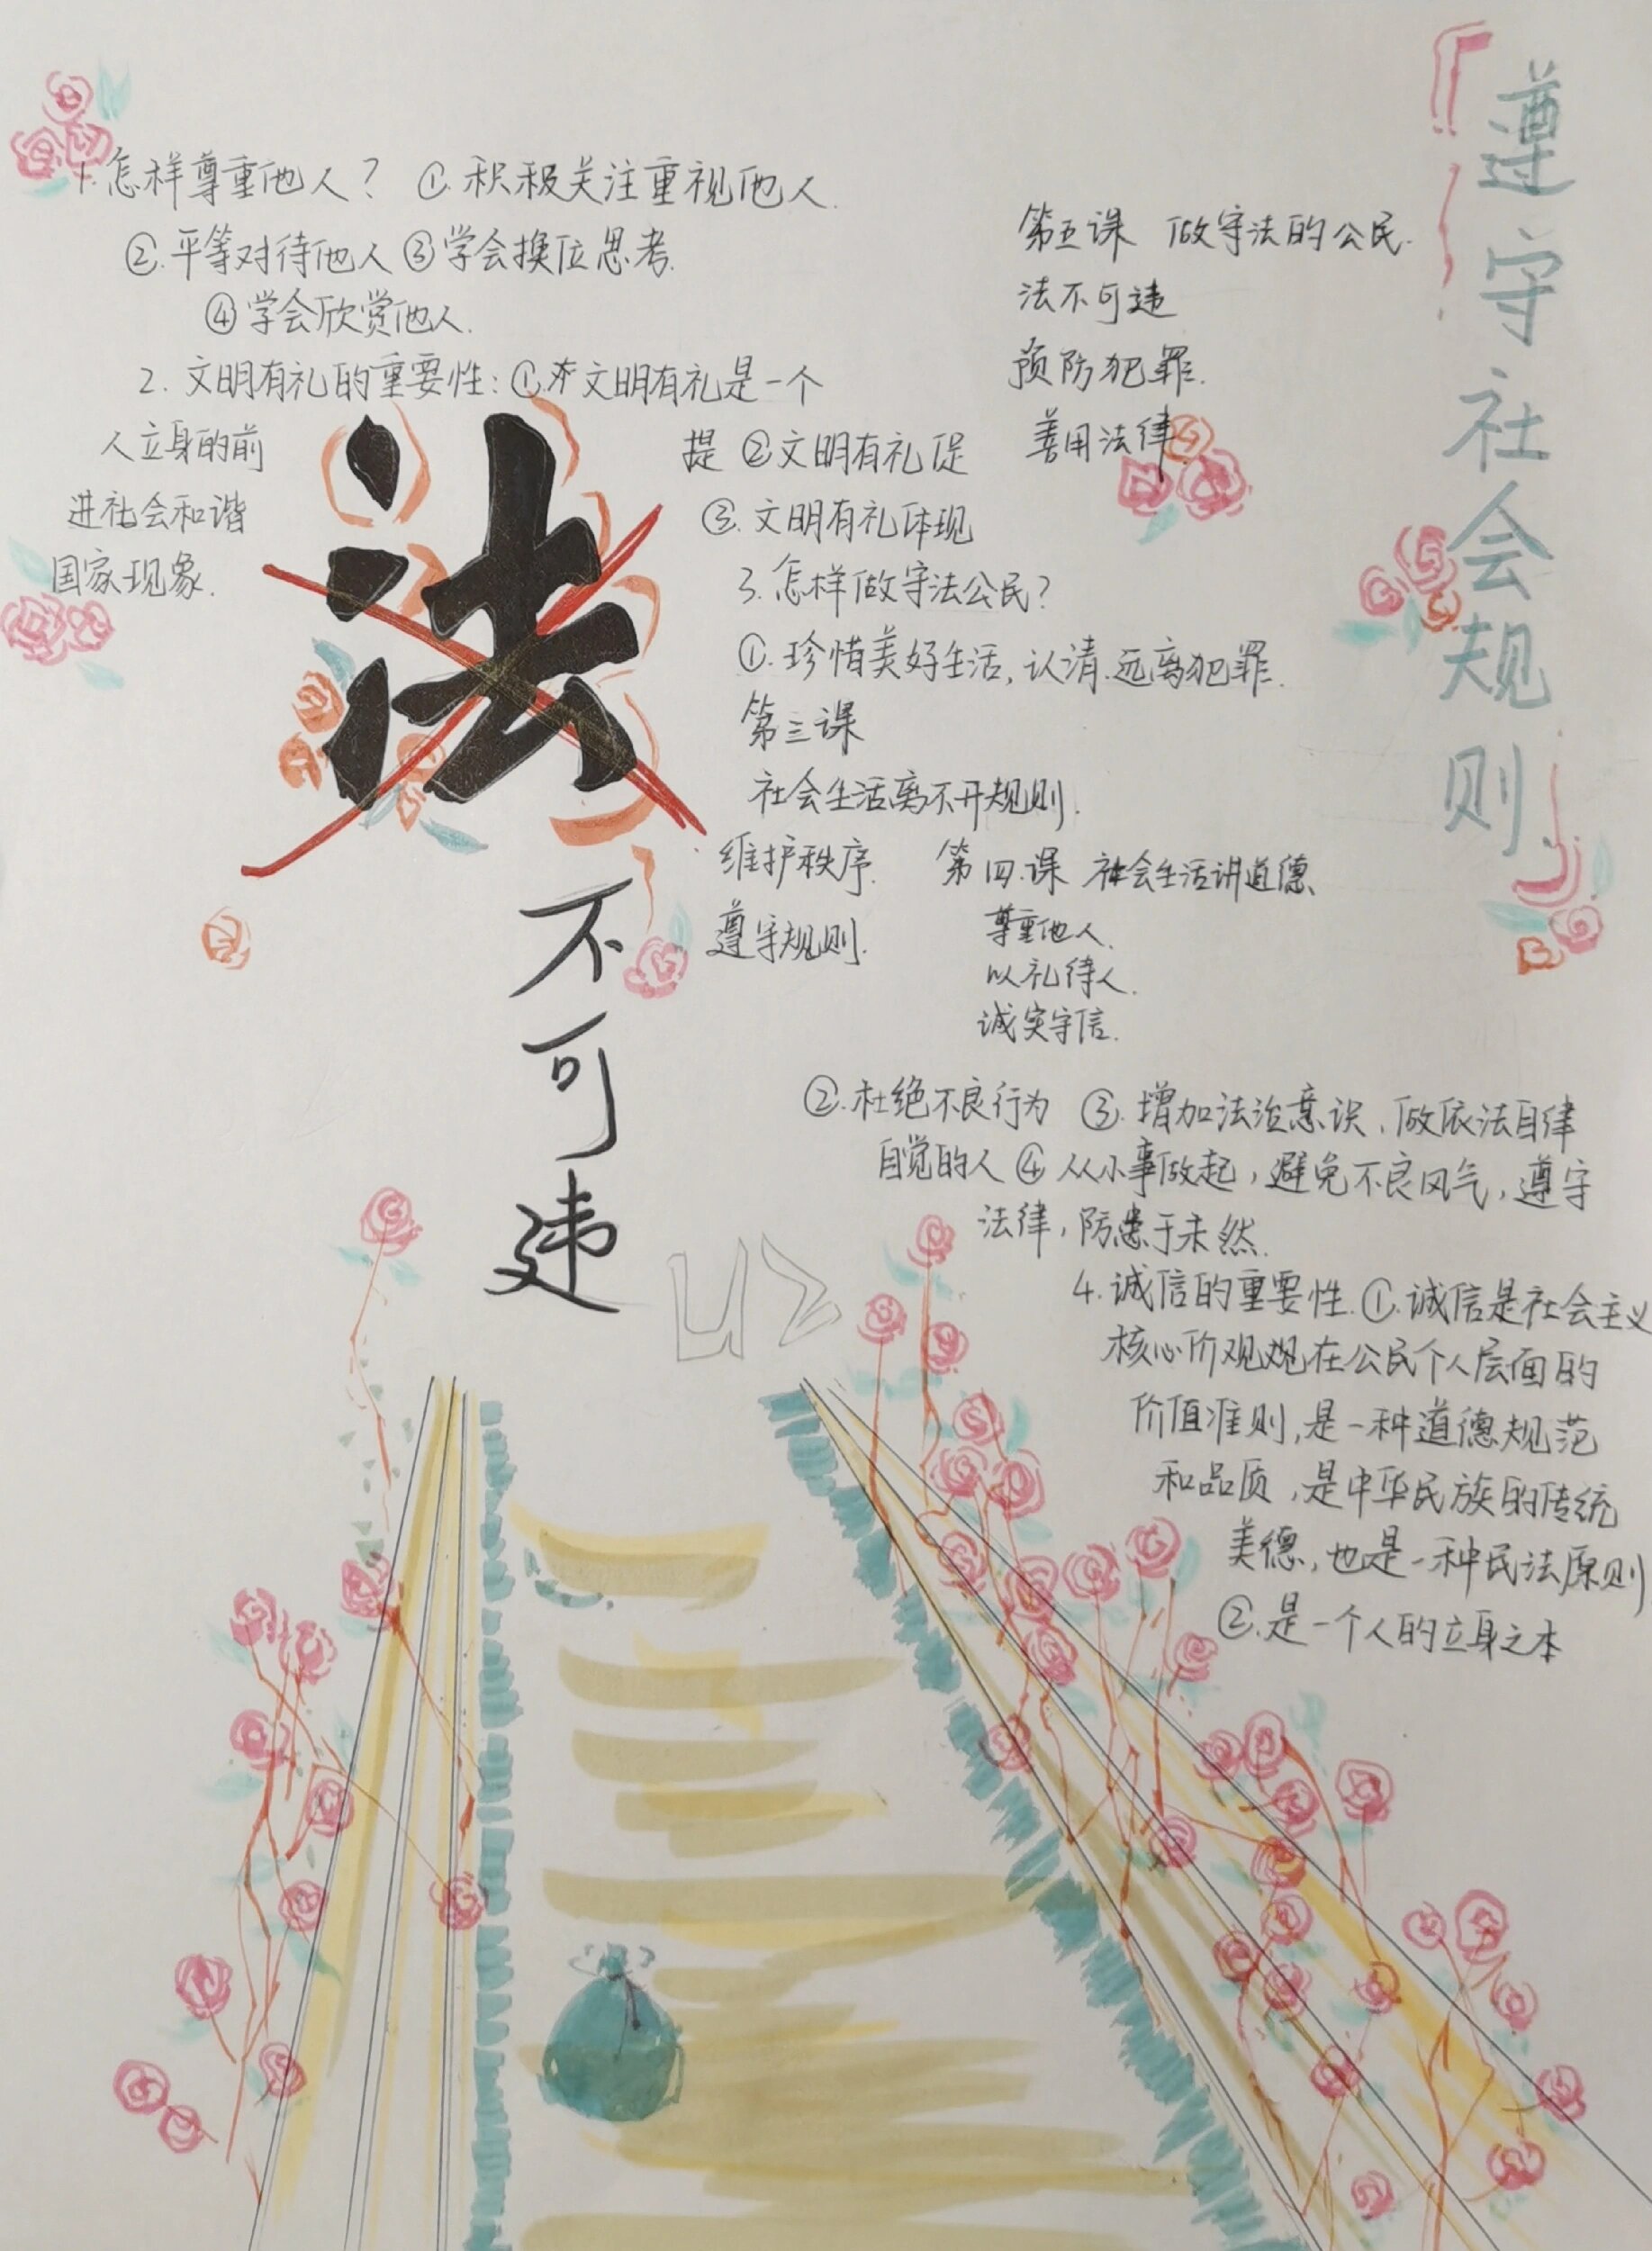 遵守社会规则
1.怎样尊重他人？ ①.积极关注重视他人.
②.平等对待他人 ③学会换位思考.
④学会欣赏他人.
2. 文明有礼的重要性:①.文明有礼是一个
人立身的前 提 ②文明有礼促
进社会和谐 ③.文明有礼体现
国家现象.
3.怎样做守法公民?
①.珍惜美好生活,认清.远离犯罪.
第三课
社会生活离不开规则.
维护秩序.
遵守规则.
第四课 社会生活讲道德
尊重他人.
以礼待人.
诚实守信.
第五课 做守法的公民.
法不可违
预防犯罪.
善用法律.
法不可违
②.杜绝不良行为 ③.增加法治意识、做依法自律
自觉的人 ④从小事做起,避免不良风气,遵守
法律,防患于未然.
4.诚信的重要性.①.诚信是社会主义
核心价观观在公民个人层面的
价值准则,是一种道德规范
和品质,是中华民族的传统
美德,也是一种民法原则
②.是一个人的立身之本